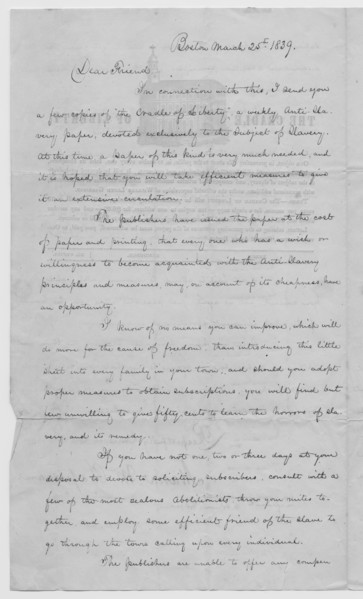 Boston March 25th 1839.
Dear Friend
In connection with this, I send you
a few copies of "the Cradle of Liberty" a weekly Anti Sla-
very paper, devoted exclusively to the Subject of Slavery.
At this time, a paper of this kind is very much needed, and
it is hoped that you will take efficient measures to give
it an extensive circulation.
The publishers have issued the paper at the cost
of paper and printing, that every one who has a wish or
willingness to become acquainted with the Anti Slavery
Principles and measures, may, on account of its cheapness, have
an opportunity.
I know of no means you can improve, which will
do more for the cause of freedom, than introducing this little
sheet into every family in your town, and should you adopt
proper measures to obtain subscriptions, you will find but
few unwilling to give fifty cents to learn the horrors of sla-
very, and its remedy.
If you have not one, two or three days at your
disposal to devote to soliciting subscribers, consult with a
few of the most zealous Abolitionists throw your mites to-
gether and employ some efficient friend of the slave to
go through the town calling upon every individual.
The publishers are unable to offer any compen